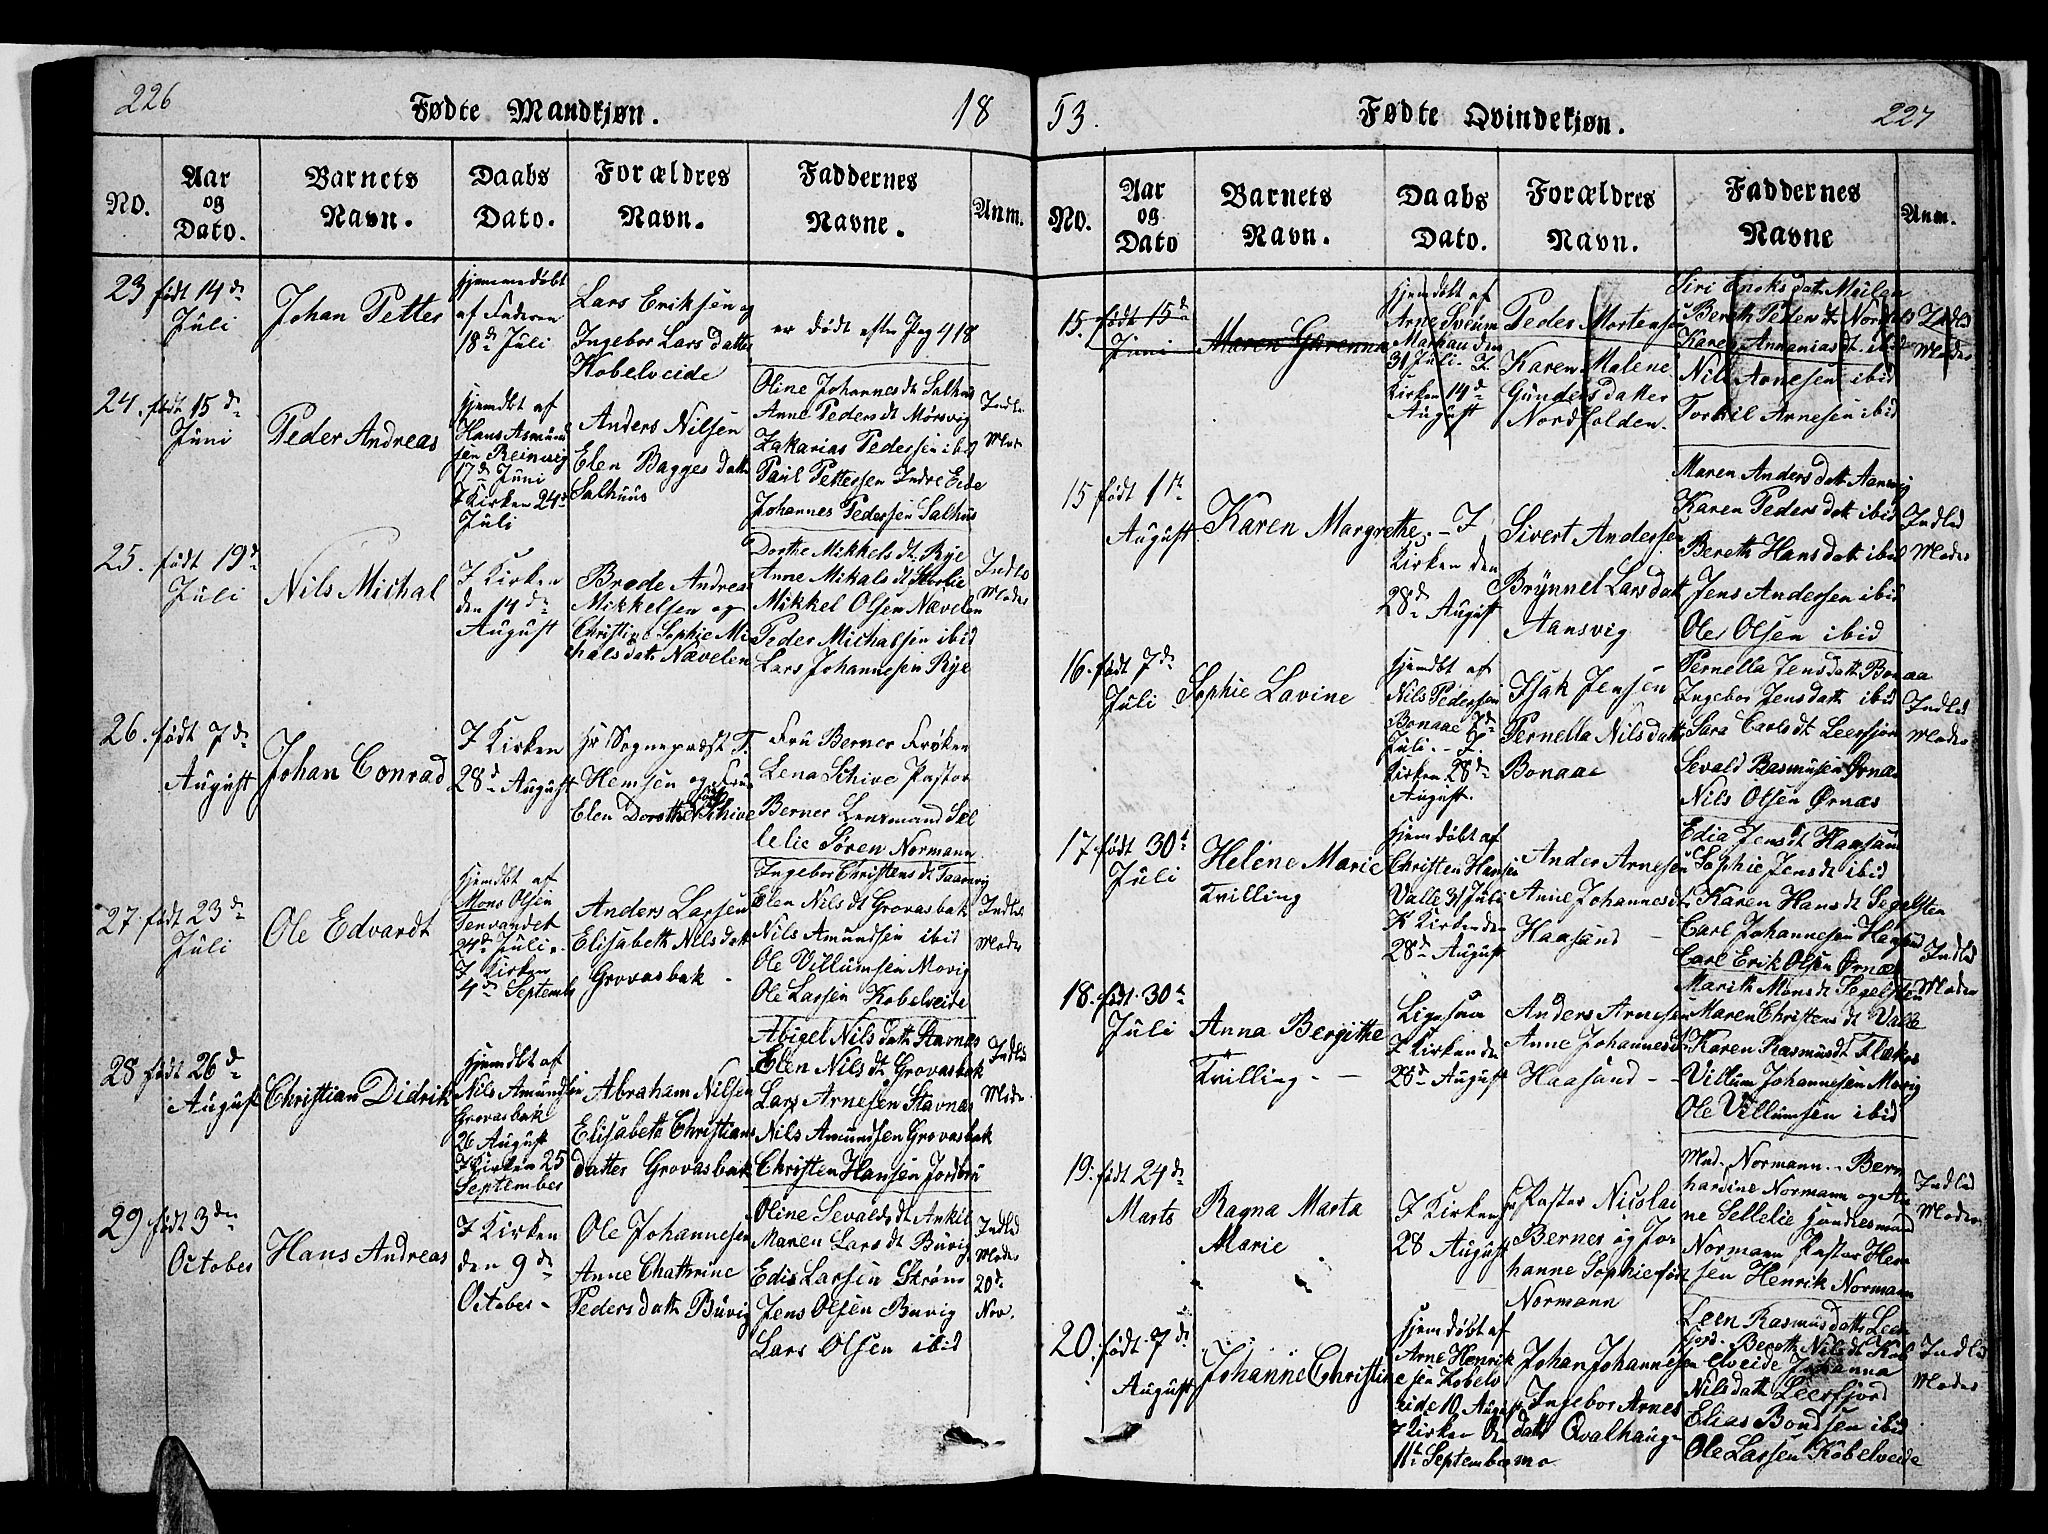 226
Fødte Mandkjøn.
18
No.
Aar
og
Dato.
Barnets
Navn.
Daabs
Dato.
Forældres
Navn.
Faddernes
Navne.
Anm.
23
født 14 d.
Juli
Johan Petter
Hjemmedøbt
af Faderen
18 d. Juli
Lars Eriksen og
Ingebor Lars datter
Kobelveide
er dødt efter Pag 418
24.
født 15 d.
Juni
Peder Andreas
Hjemdbt af
Hans Asmund
sen Reinvig
17 d. Juni
I Kirken 24 d.
Juli
Anders Nilsen
Elen Bagges datt
Salhuus
Oline Johannes dt Salhus
Anne Peders dt Mørsvig
Zakarias Pedersen ibid
Paul Pettersen Indre Eide
Johannes Pedersen Salhus
Indle
Moder
25.
født 19 d.
Juli
Nils Michal
I Kirken
den 14 d.
August
Brede Andreas
Mikkelsen og
Christine Sophie Mi
chals datt Nævelen
Dorthe Mikkels dt Rye
Anne Mikals dt Storlie
Mikkel Olsen Nævelen
Peder Michalsen ibid
Lars Johannesen Rye
Indle
Moder
26.
født 7 d.
August
Johan Conrad
I Kirken
28 d. August
Hr Sognepræst T.
Hemsen og Fru
Elen Dorothe født Schive
Fru Berner Frøken
Lena Schive Pastor
Berner Lensmand Sel
lelie Søren Normann
27.
født 23 d.
Juli
Ole Edvardt
Hjemdbt af
Mons Olsen
Tenvandet
24 d. Juli.
I Kirken
4 d. Septemb
Anders Larsen
Elisabeth Nils datt
Grovasbak
Ingebor Christens dt Taarnvig
Elen Nils dt Grovasbak
Nils Amundsen ibid
Ole Villumsen Movig
Ole Larsen Kobelveide
Indle
Moder
28
født 26 d.
August
Christian Didrik
Hjemdbt af
Nils Amundsen
Grovasbak
26 August
I Kirken 25
September
Abraham Nilsen
Elisabeth Christians
datter Grovasbak
Abigel Nils datt Stavnes
Elen Nils dt Grovasbak
Lars Arnesen Stavnæs
Nils Amundsen Grovasbak
Christen Hansen Jordbru
Indle
Moder
29
født 3 den
October
Hans Andreas
I Kirken
den 9 d.
October
Ole Johannesen
Anne Chathrine
Peders datt Buvig
Oline Sevalds dt Ankil
Maren Lars dt Buvig
Edis Larsen Strøm
Jens Olsen Buvig
Lars Olsen ibid
Indle
Moder
20 d.
Nov.
53.
Fødte Qvindekjøn.
227
No.
Aar
og
Dato
Barnets
Navn.
Daabs
Dato.
Forældres
Navn.
Faddernes
Navne
Anm.
15.
født 15 d.
Juni
Maren Gurenna
Hjemdøbt af
Arne Sveum
Markau den
31 Juli. I.
Kirken 14 d.
August
Peder Mortensen
Karen Malene
Gunders datter
Nordfolden.
Siri Enoks datt Muilen
Bereth Peder dt Nordfols
Karen Annanias dt ibid
Nils Arnesen ibid
Torkil Arnesen ibid
Indle
Moder
15
født 11 t.
August
Karen Margrethe
I
Kirken den
28 d. August
Sivert Andersen
Brynnel Lars datt
Aansvig
Maren Anders datt Aanvig
Karen Peders datt ibid
Bereth Hans datt ibid
Jens Andersen ibid
Ole Olsen ibid
Indle
Moder
16.
født 7 d.
Juli
Sophie Lavine
Hjemdbt af
Nils Pedersen
Bonaae 7 d.
Juli. I.
Kirken 28 d.
August.
Isak Jensen
Pernella Nils datt
Bonaae
Pernella Jens datt Bonaa
Ingebor Jens datt ibid
Sara Carls dt Leerfjor
Sevald Rasmusen Ørnæs
Nils Olsen Ørnæs
Indle
Moder
17.
født 30 t.
Juli
Helene Marie
Tvilling
Hjemdøbt af
Christen Hansen
Valle 31 Juli
I Kirken den
28 d. August
Ander Arnesen
Anne Johannes dt
Haasund
Edia Jens dt Haasund
Sophie Jens dt ibid
Karen Hans dt Segelsten
Carl Johannesen Haasund
Carl Erik Olsen Ørnæs
Indle
Moder
18.
født 30 t.
Juli
Anna Bergitha
Tvilling
Ligesaa
I Kirken de
28 d. August
Anders Arnesen
Anne Johannes dt
Haasund
Marik Mons dt Segelsten
Maren Christens dt Valle
Karen Rasmus dt
Villum Johannesen Movig
Ole Villumsen ibid
19.
født 24 d.
Marts
Ragna Marta
Marie
I Kirken
28 August
Hr Pastor Nicolai
Berner og Jo
hanne Sophie født
Normann
Mad. Normann. Bern
hardine Normann og An
ne Sellelie Handlesmand
Normann Pastor Hem
sen Henrik Normann
Indle
Moder
20.
født 7 d.
August
Johanne Christine
Hjemdøbt af
Arne Henrik
sen Kobelv
eide 10 August
I Kirken den
11 t. September
Johan Johannesen
Ingebor Arnes
datt Qvalhaug
mo
Leen Rasmus datt Leer
fjord. Bereth Nils dt Kob
elveide Johanna
Nils datt Leerfjord
Elias Bondsen ibid
Ole Larsen Kobelveide
Indle
Moder